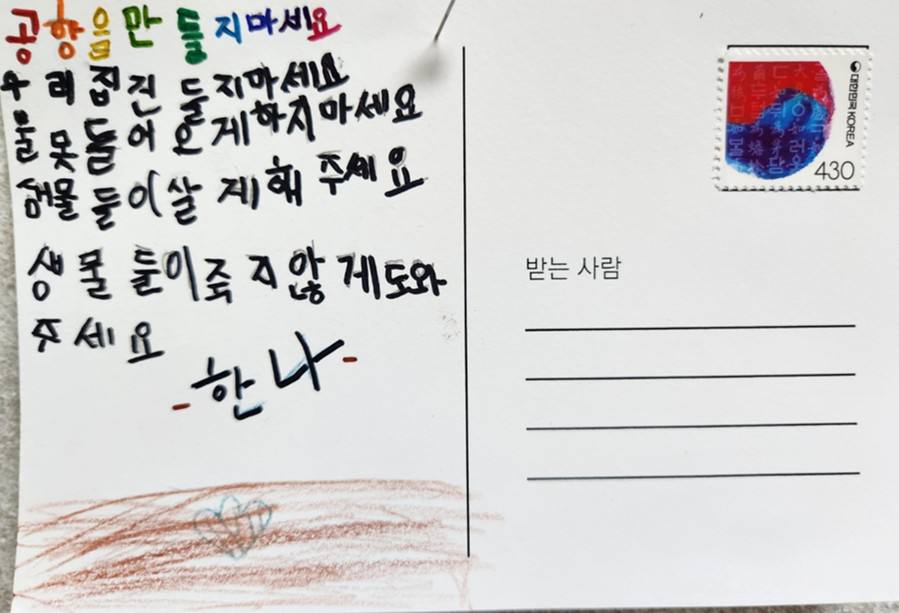 공항을만들지마세요
우리집진들지마세요
물못들어오게하지마세요
샘물들이살게해주세요
생물들이죽지않게도와
주세요
-한나-
대한민국 KOREA
430
받는 사람